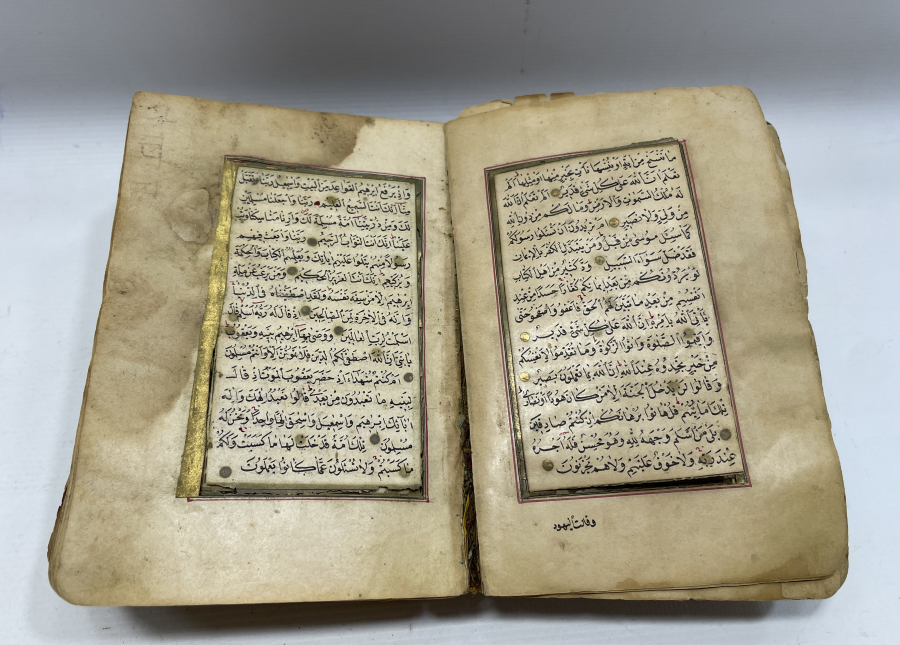 مَا نَنْسَخْ مِنْ اٰيَةٍ اَوْ نُنْسِهَا نَأْتِ بِخَيْرٍ مِنْهَا اَوْ مِثْلِهَا اَلَمْ
تَعْلَمْ اَنَّ اللّٰهَ عَلٰى كُلِّ شَىْءٍ قَدِيرٌ اَلَمْ تَعْلَمْ اَنَّ اللّٰهَ
لَهُ مُلْكُ السَّمٰوَاتِ وَالْاَرْضِ وَمَا لَكُمْ مِنْ دُونِ اللّٰهِ
مِنْ وَلِيٍّ وَلَا نَصِيرٍ اَمْ تُرِيدُونَ اَنْ تَسْئَلُوا رَسُولَكُمْ
كَمَا سُئِلَ مُوسٰى مِنْ قَبْلُ وَمَنْ يَتَبَدَّلِ الْكُفْرَ بِالْاِيمَانِ
فَقَدْ ضَلَّ سَوَاءَ السَّبِيلِ وَدَّ كَثِيرٌ مِنْ اَهْلِ الْكِتَابِ
لَوْ يَرُدُّونَكُمْ مِنْ بَعْدِ اِيمَانِكُمْ كُفَّارًا حَسَدًا مِنْ عِنْدِ
اَنْفُسِهِمْ مِنْ بَعْدِ مَا تَبَيَّنَ لَهُمُ الْحَقُّ فَاعْفُوا وَاصْفَحُوا حَتّٰى
يَأْتِيَ اللّٰهُ بِاَمْرِهِ اِنَّ اللّٰهَ عَلٰى كُلِّ شَىْءٍ قَدِيرٌ
وَاَقِيمُوا الصَّلٰوةَ وَاٰتُوا الزَّكٰوةَ وَمَا تُقَدِّمُوا لِاَنْفُسِكُمْ
مِنْ خَيْرٍ تَجِدُوهُ عِنْدَ اللّٰهِ اِنَّ اللّٰهَ بِمَا تَعْمَلُونَ بَصِيرٌ
وَقَالُوا لَنْ يَدْخُلَ الْجَنَّةَ اِلَّا مَنْ كَانَ هُودًا اَوْ نَصَارٰى
تِلْكَ اَمَانِيُّهُمْ قُلْ هَاتُوا بُرْهَانَكُمْ اِنْ كُنْتُمْ صَادِقِينَ
بَلٰى مَنْ اَسْلَمَ وَجْهَهُ لِلّٰهِ وَهُوَ مُحْسِنٌ فَلَهُ اَجْرُهُ
عِنْدَ رَبِّهِ وَلَا خَوْفٌ عَلَيْهِمْ وَلَا هُمْ يَحْزَنُونَ
وقالت اليهود
وَاِذْ يَرْفَعُ اِبْرٰهِيمُ الْقَوَاعِدَ مِنَ الْبَيْتِ وَاِسْمٰعِيلُ رَبَّنَا تَقَبَّلْ
مِنَّا اِنَّكَ اَنْتَ السَّمِيعُ الْعَلِيمُ رَبَّنَا وَاجْعَلْنَا مُسْلِمَيْنِ
لَكَ وَمِنْ ذُرِّيَّتِنَا اُمَّةً مُسْلِمَةً لَكَ وَاَرِنَا مَنَاسِكَنَا وَتُبْ
عَلَيْنَا اِنَّكَ اَنْتَ التَّوَّابُ الرَّحِيمُ رَبَّنَا وَابْعَثْ فِيهِمْ
رَسُولًا مِنْهُمْ يَتْلُوا عَلَيْهِمْ اٰيَاتِكَ وَيُعَلِّمُهُمُ الْكِتَابَ وَالْحِكْمَةَ
وَيُزَكِّيهِمْ اِنَّكَ اَنْتَ الْعَزِيزُ الْحَكِيمُ وَمَنْ يَرْغَبُ عَنْ مِلَّةِ
اِبْرٰهِيمَ اِلَّا مَنْ سَفِهَ نَفْسَهُ وَلَقَدِ اصْطَفَيْنَاهُ فِي الدُّنْيَا
وَاِنَّهُ فِي الْاٰخِرَةِ لَمِنَ الصَّالِحِينَ اِذْ قَالَ لَهُ رَبُّهُ اَسْلِمْ قَالَ
اَسْلَمْتُ لِرَبِّ الْعَالَمِينَ وَوَصّٰى بِهَا اِبْرٰهِيمُ بَنِيهِ وَيَعْقُوبُ
يَا بَنِيَّ اِنَّ اللّٰهَ اصْطَفٰى لَكُمُ الدِّينَ فَلَا تَمُوتُنَّ اِلَّا وَاَنْتُمْ مُسْلِمُونَ
اَمْ كُنْتُمْ شُهَدَاءَ اِذْ حَضَرَ يَعْقُوبَ الْمَوْتُ اِذْ قَالَ
لِبَنِيهِ مَا تَعْبُدُونَ مِنْ بَعْدِي قَالُوا نَعْبُدُ اِلٰهَكَ وَاِلٰهَ
اٰبَائِكَ اِبْرٰهِيمَ وَاِسْمٰعِيلَ وَاِسْحٰقَ اِلٰهًا وَاحِدًا وَنَحْنُ لَهُ
مُسْلِمُونَ تِلْكَ اُمَّةٌ قَدْ خَلَتْ لَهَا مَا كَسَبَتْ وَلَكُمْ
مَا كَسَبْتُمْ وَلَا تُسْئَلُونَ عَمَّا كَانُوا يَعْمَلُونَ